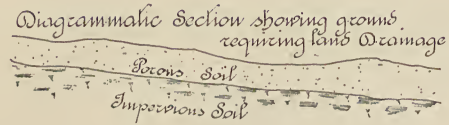 Diagrammatic Section showing ground
requiring land Drainage
Porous Soil
Impervious Soil